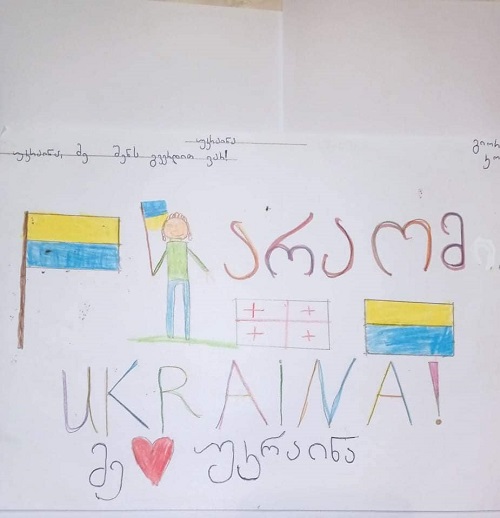 უკრაინა
უკრაინა, მე შენს გვერდით ვარ!
გიორ
არა ომ
UKRAINA!
მე ❤ უკრაინა